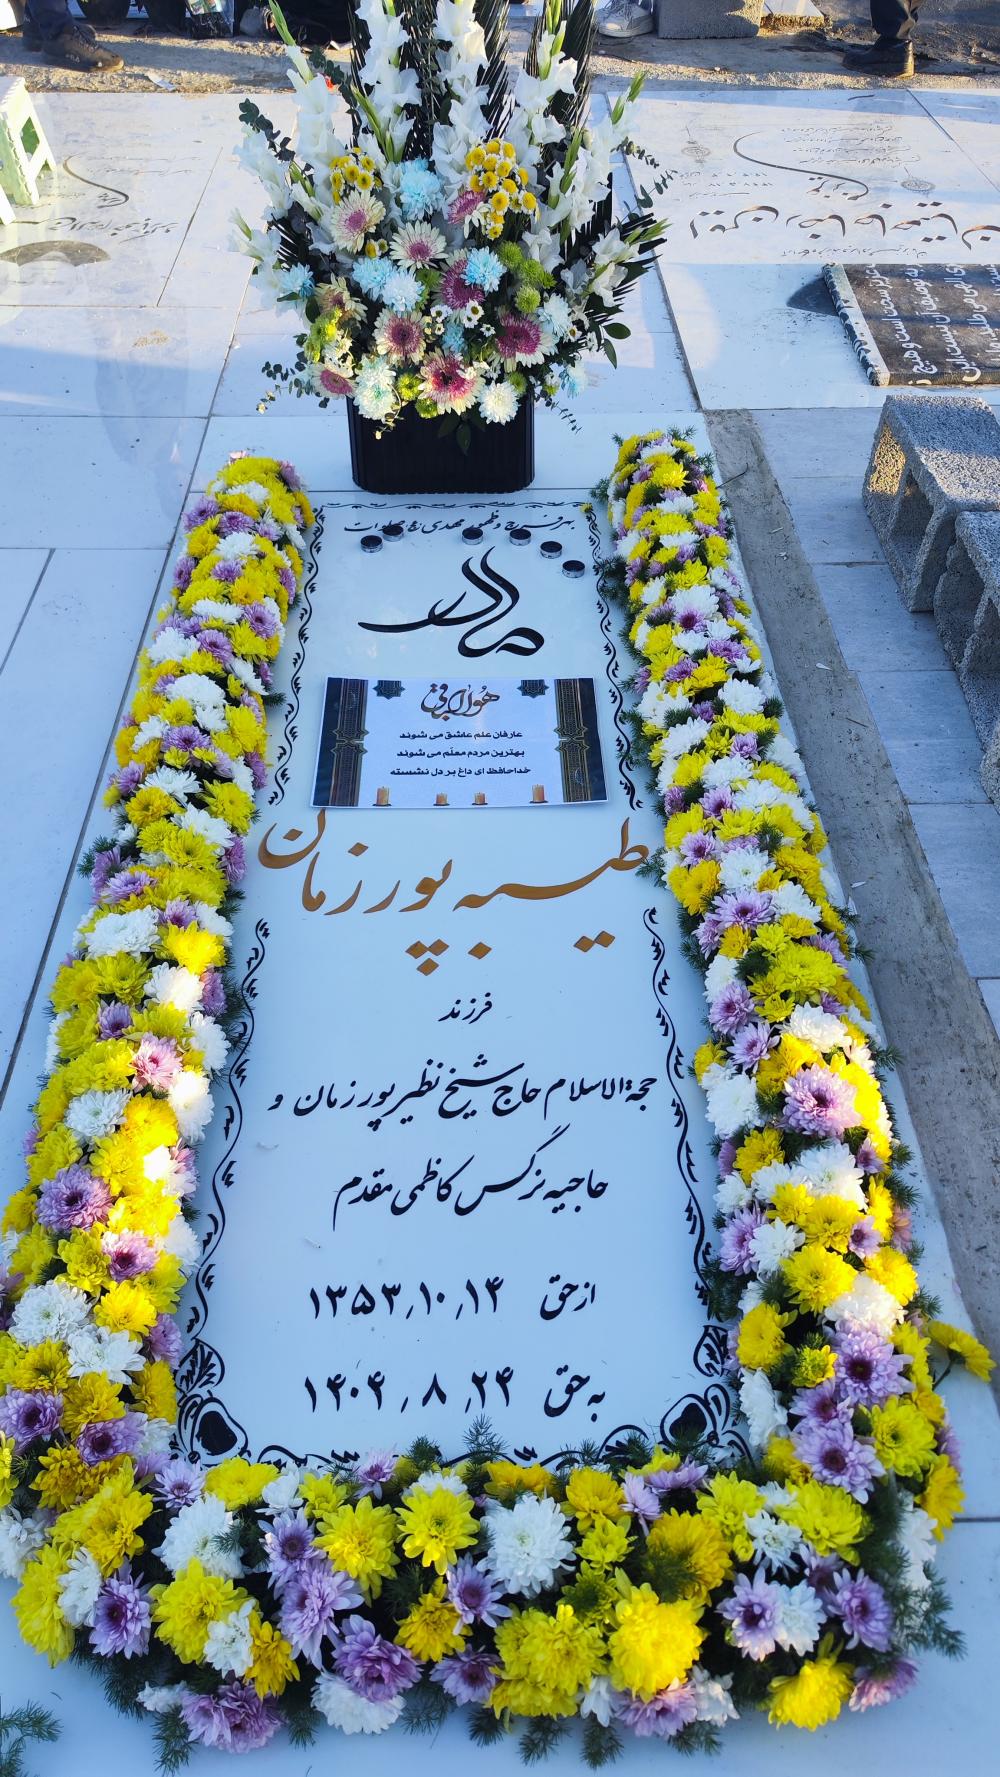 بهر فرج و ظهور مهدی (عج) صلوات
مادر
هُوَالباقی
عارفان علم عاشق می شوند
بهترین مردم معلّم می شوند
خداحافظ ای داغ بر دل نشسته
طیبه پورزمان
فرزند
حجةالاسلام حاج شیخ نظیر پورزمان و
حاجیه نرگس کاظمی مقدم
از حق ۱۳۵۳٫۱۰٫۱۴
به حق ۱۴۰۴٫۸٫۲۴